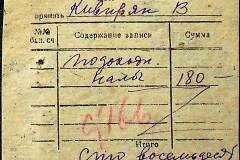 принять Кивирян В
№№ бл. сч. Содержание записи Сумма
подоходн.
налог 180 —
Итого
Сто восемьдесят